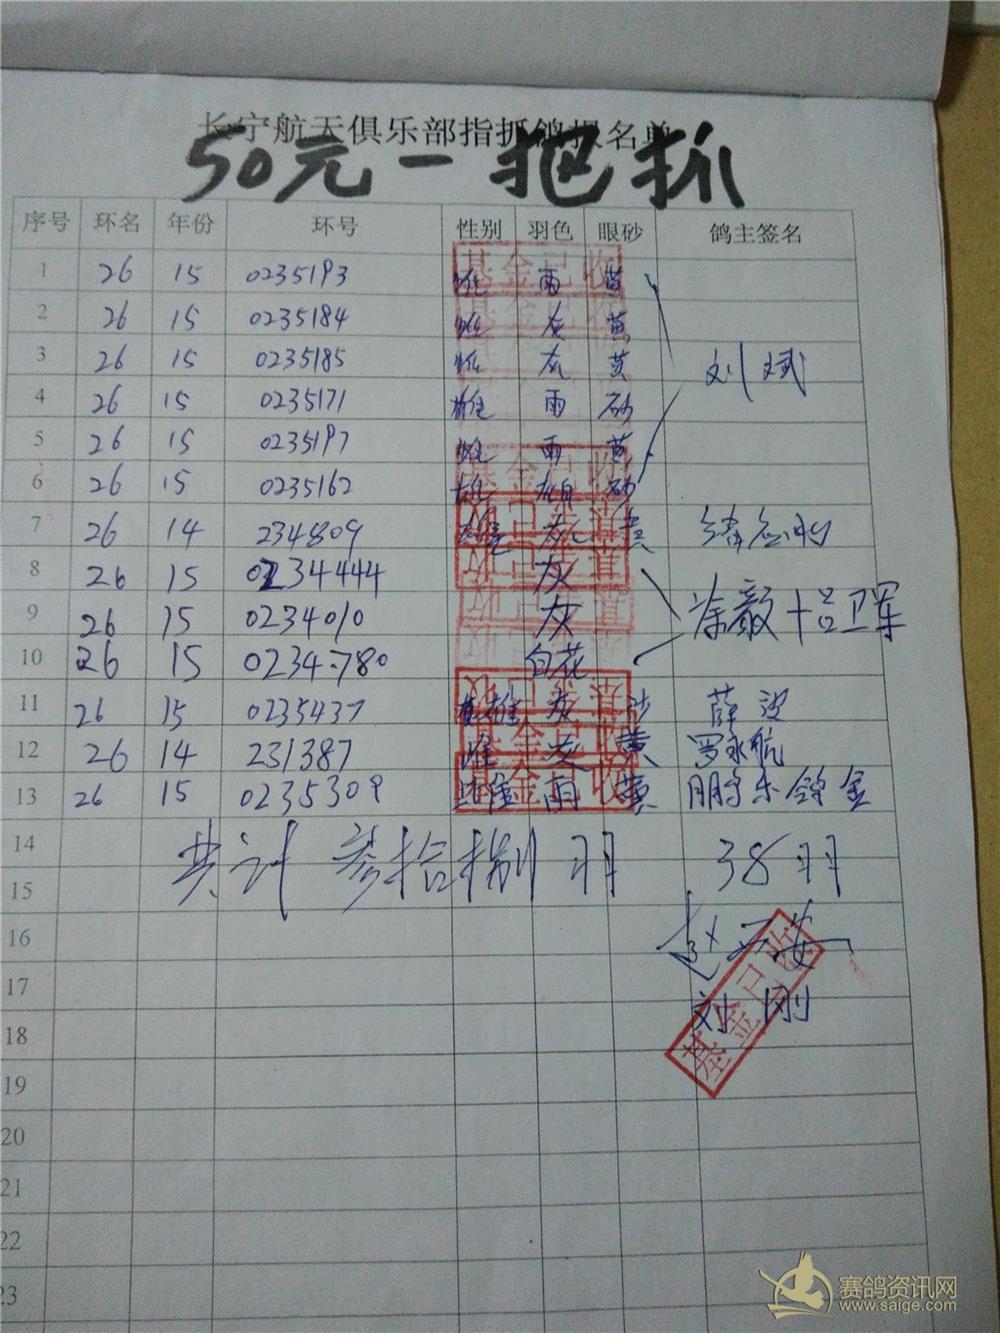 长宁航天俱乐部指抓鸽报名单
50元一抠抓
序号 环名 年份 环号 性别 羽色 眼砂 鸽主签名
1 26 15 0235193 雌 雨 黄
2 26 15 0235184 雌 灰 黄
3 26 15 0235185 雌 灰 黄 刘斌
4 26 15 0235171 雄 雨 砂
5 26 15 0235197 雌 雨 黄
6 26 15 0235162 雄 砂
7 26 14 234809 灰 黄
8 26 15 0234444 灰
9 26 15 0234010 灰 涂毅十吕卫军
10 26 15 0234780 白花
11 26 15 0235437 雄 灰 砂 薛波
12 26 14 231387 雄 灰 黄 罗永航
13 26 15 0235309 雄 雨 黄
14 共计 叁拾捌羽 38羽
15
16 赵云安
17 刘刚
18
19
20
21
22
23
基金已收
赛鸽资讯网
www.saige.com